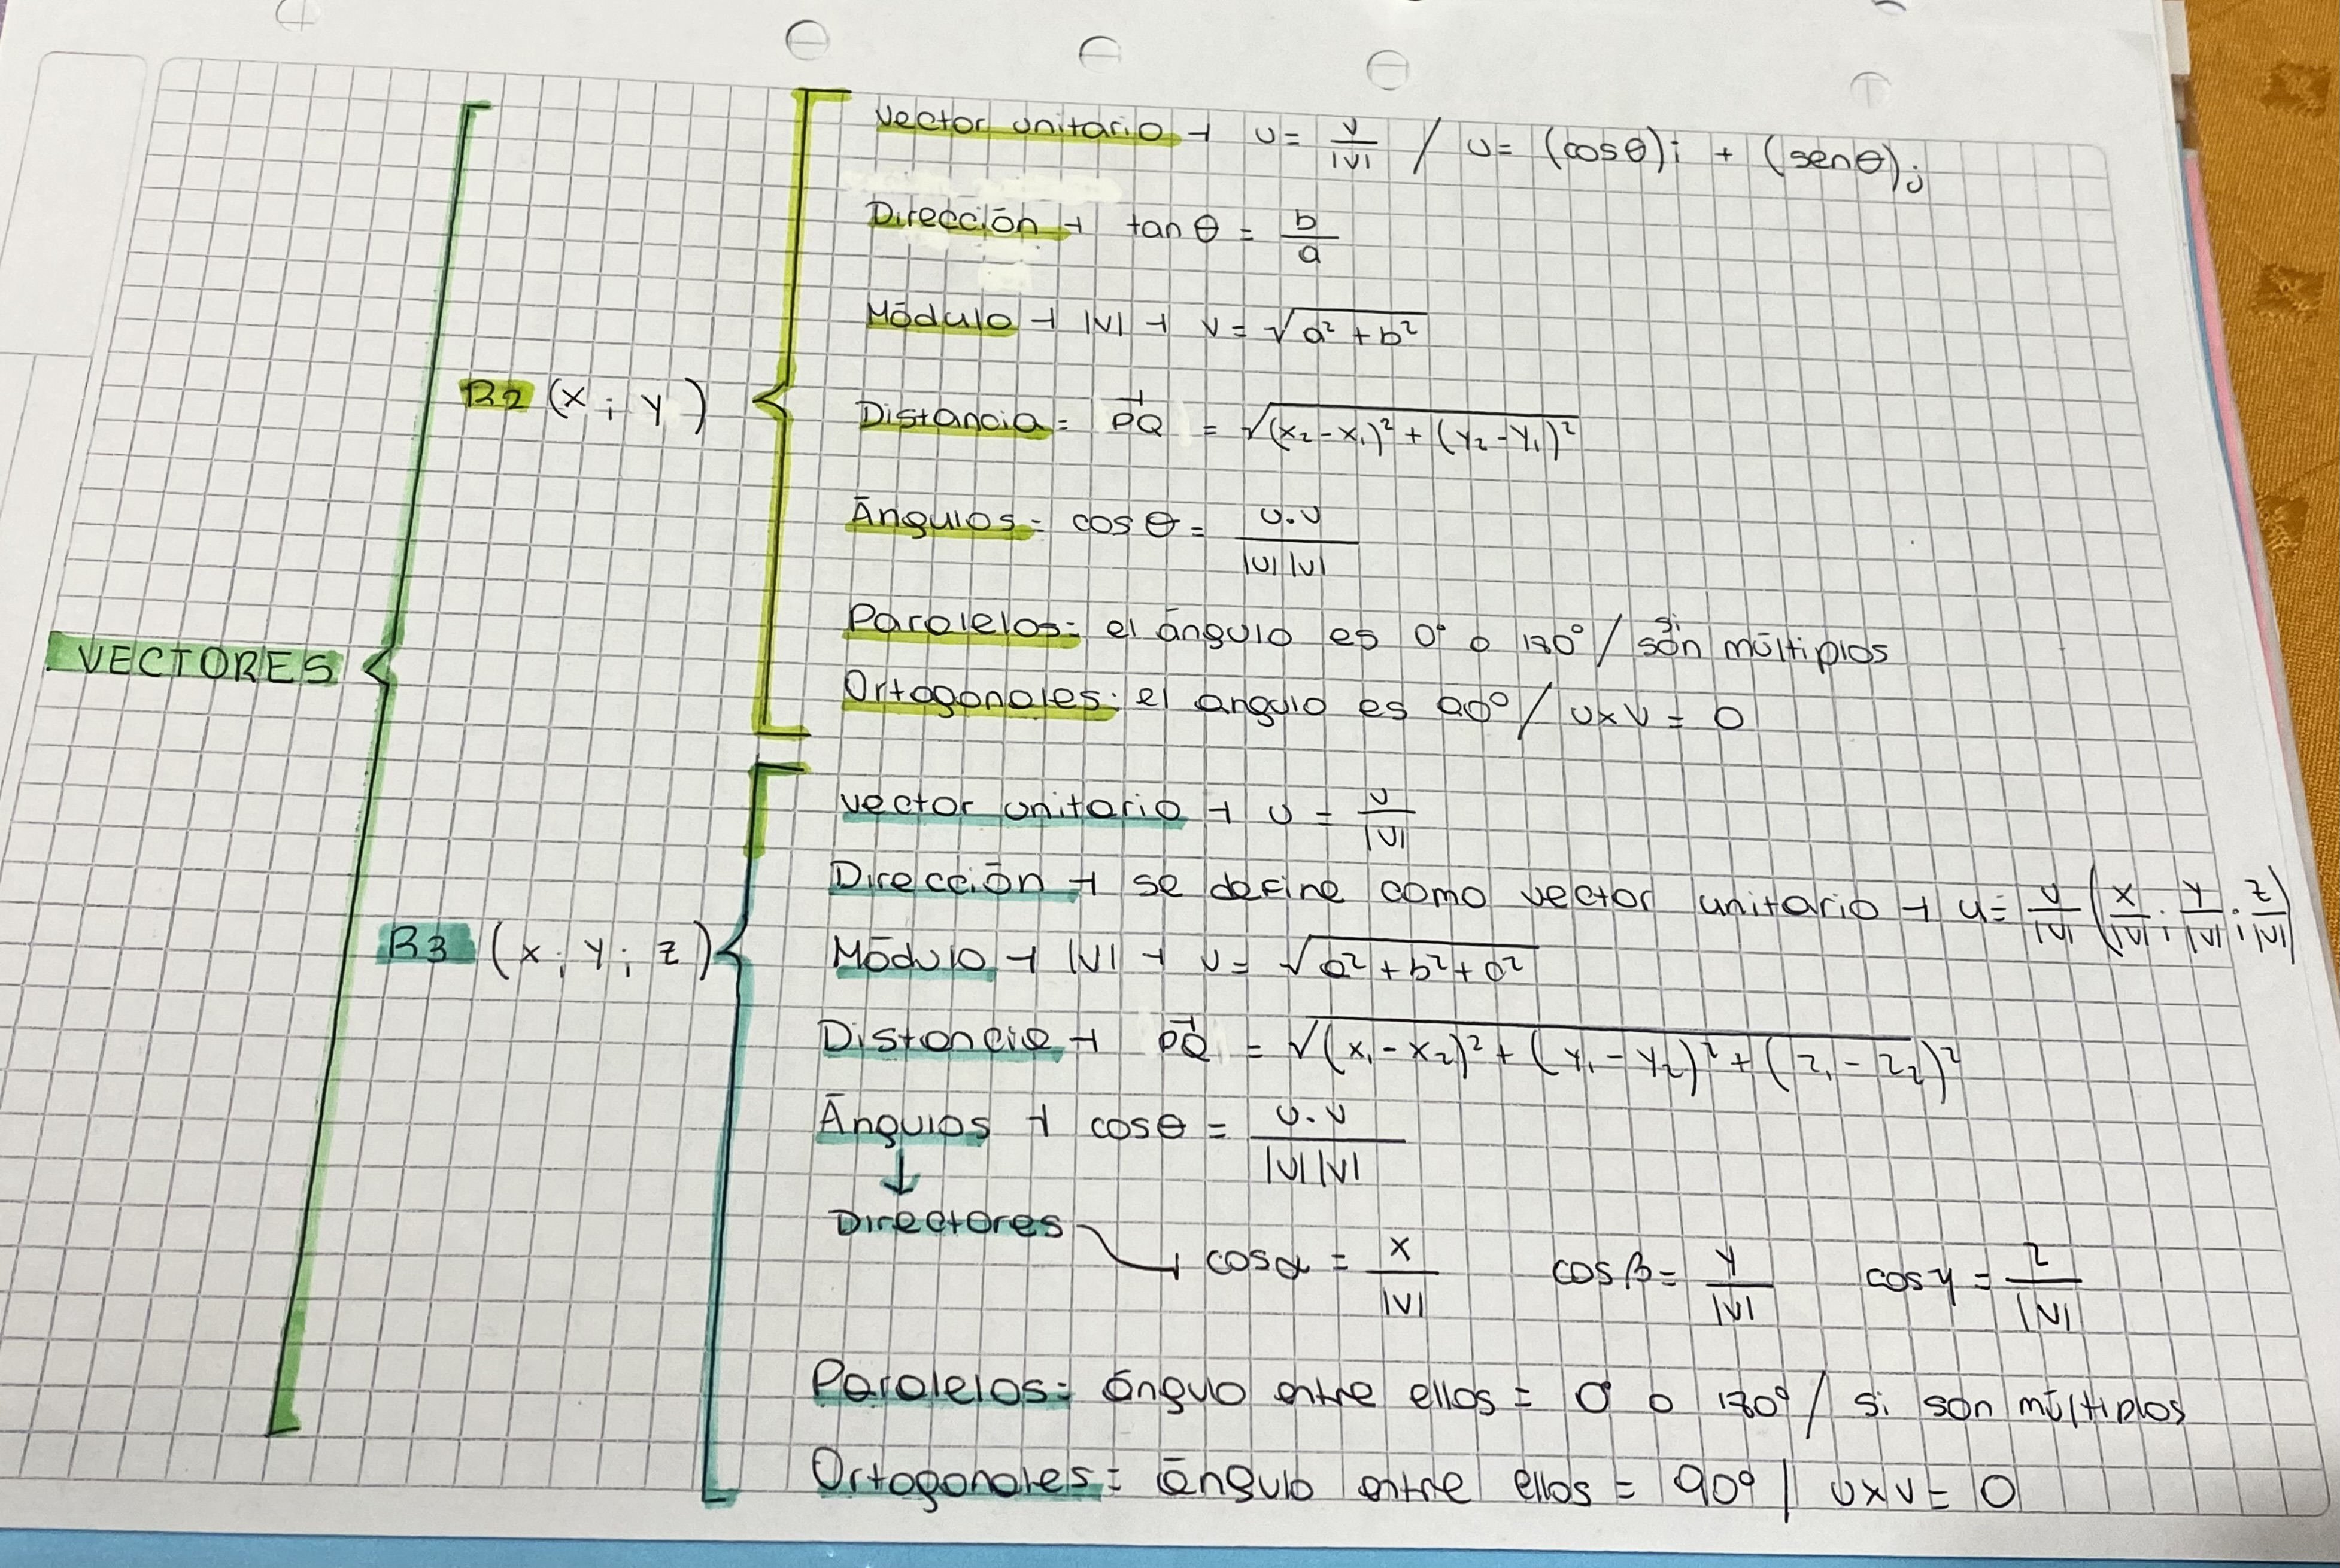 VECTORES
R2 (x ; y)
Vector unitario → u = v/|v| / u = (cosθ)i + (senθ)j
Dirección → tan θ = b/a
Módulo → |v| → v = √(a² + b²)
Distancia = PQ = √((x₂ - x₁)² + (y₂ - y₁)²)
Ángulos = cos θ = u.v/|u||v|
Paralelos: el ángulo es 0° o 180° / si son múltiplos
Ortogonales: el angulo es 90° / u x v = 0
R3 (x ; y ; z)
vector unitario → u = v/|v|
Dirección → se define como vector unitario → u = v/|v| (x/|v| ; y/|v| ; z/|v|)
Módulo → |v| → v = √(a² + b² + c²)
Distancia → PQ = √((x₁ - x₂)² + (y₁ - y₂)² + (z₁ - z₂)²)
Ángulos → cosθ = u.v/|u||v|
↓
Directores → cosα = x/|v| cosβ = y/|v| cosγ = z/|v|
Paralelos: ángulo entre ellos = 0° o 180° / si son múltiplos
Ortogonales = ángulo entre ellos = 90° / u x v = 0